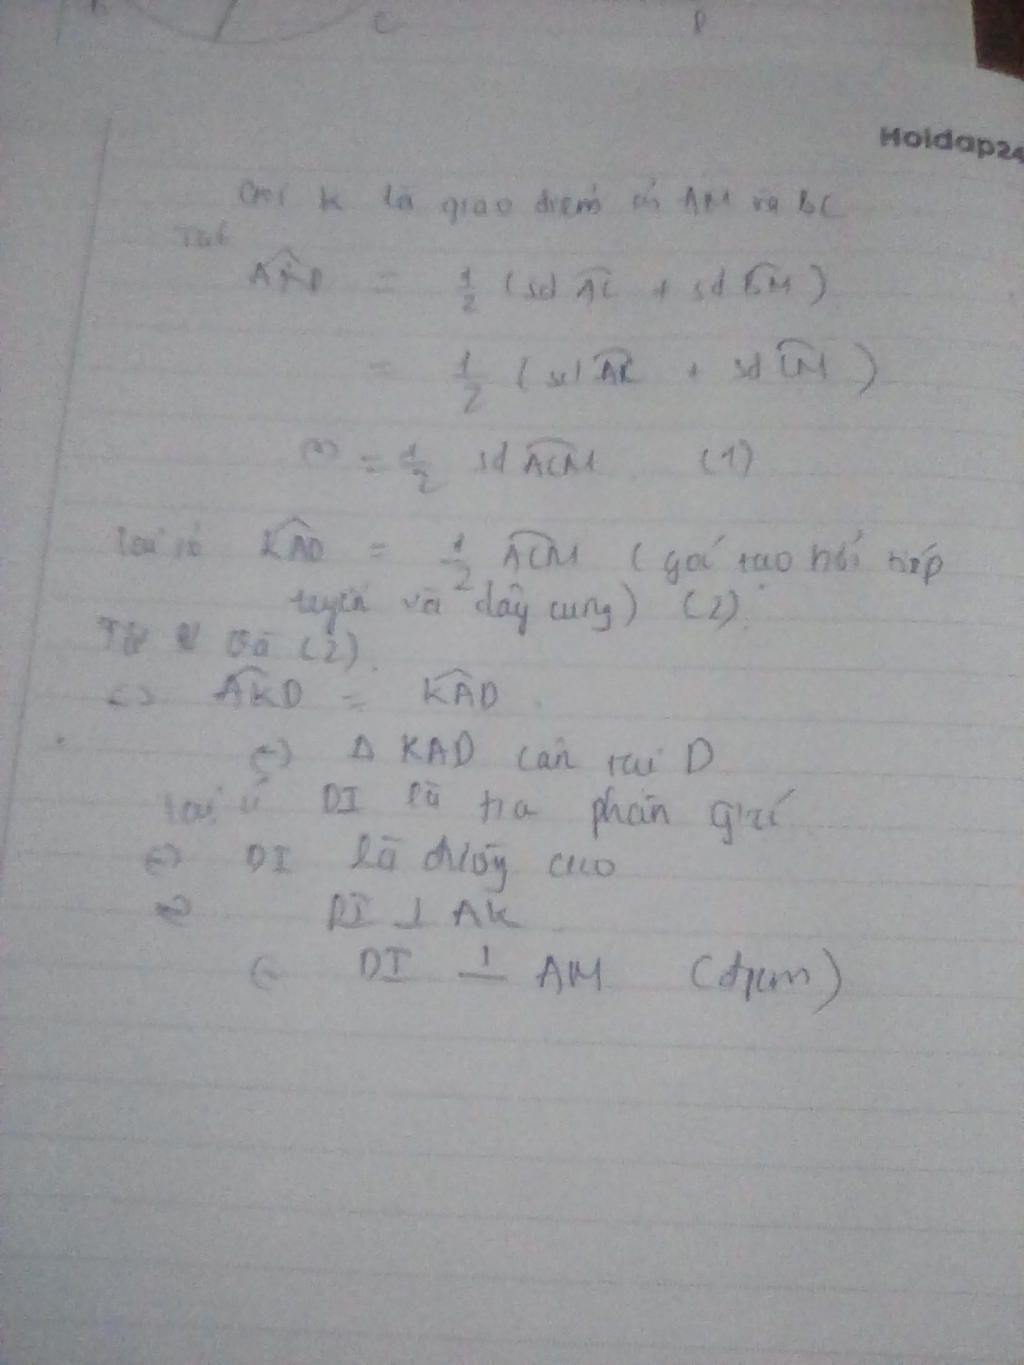 C
D
Hoidap24
Gọi K là giao điểm của AM và BC
Ta có
AKD = 1/2 (sđ AC + sđ BM)
= 1/2 (sđ AC + sđ CM)
= 1/2 sđ ACM (1)
lại có KAD = 1/2 ACM (góc tạo bởi tiếp
tuyến và dây cung) (2).
Từ và (2).
<=> AKD = KAD.
<=> Δ KAD cân tại D
lại có DI là tia phân giác
<=> DI là đường cao
DI ⊥ AK
DI ⊥ AM (đpcm)